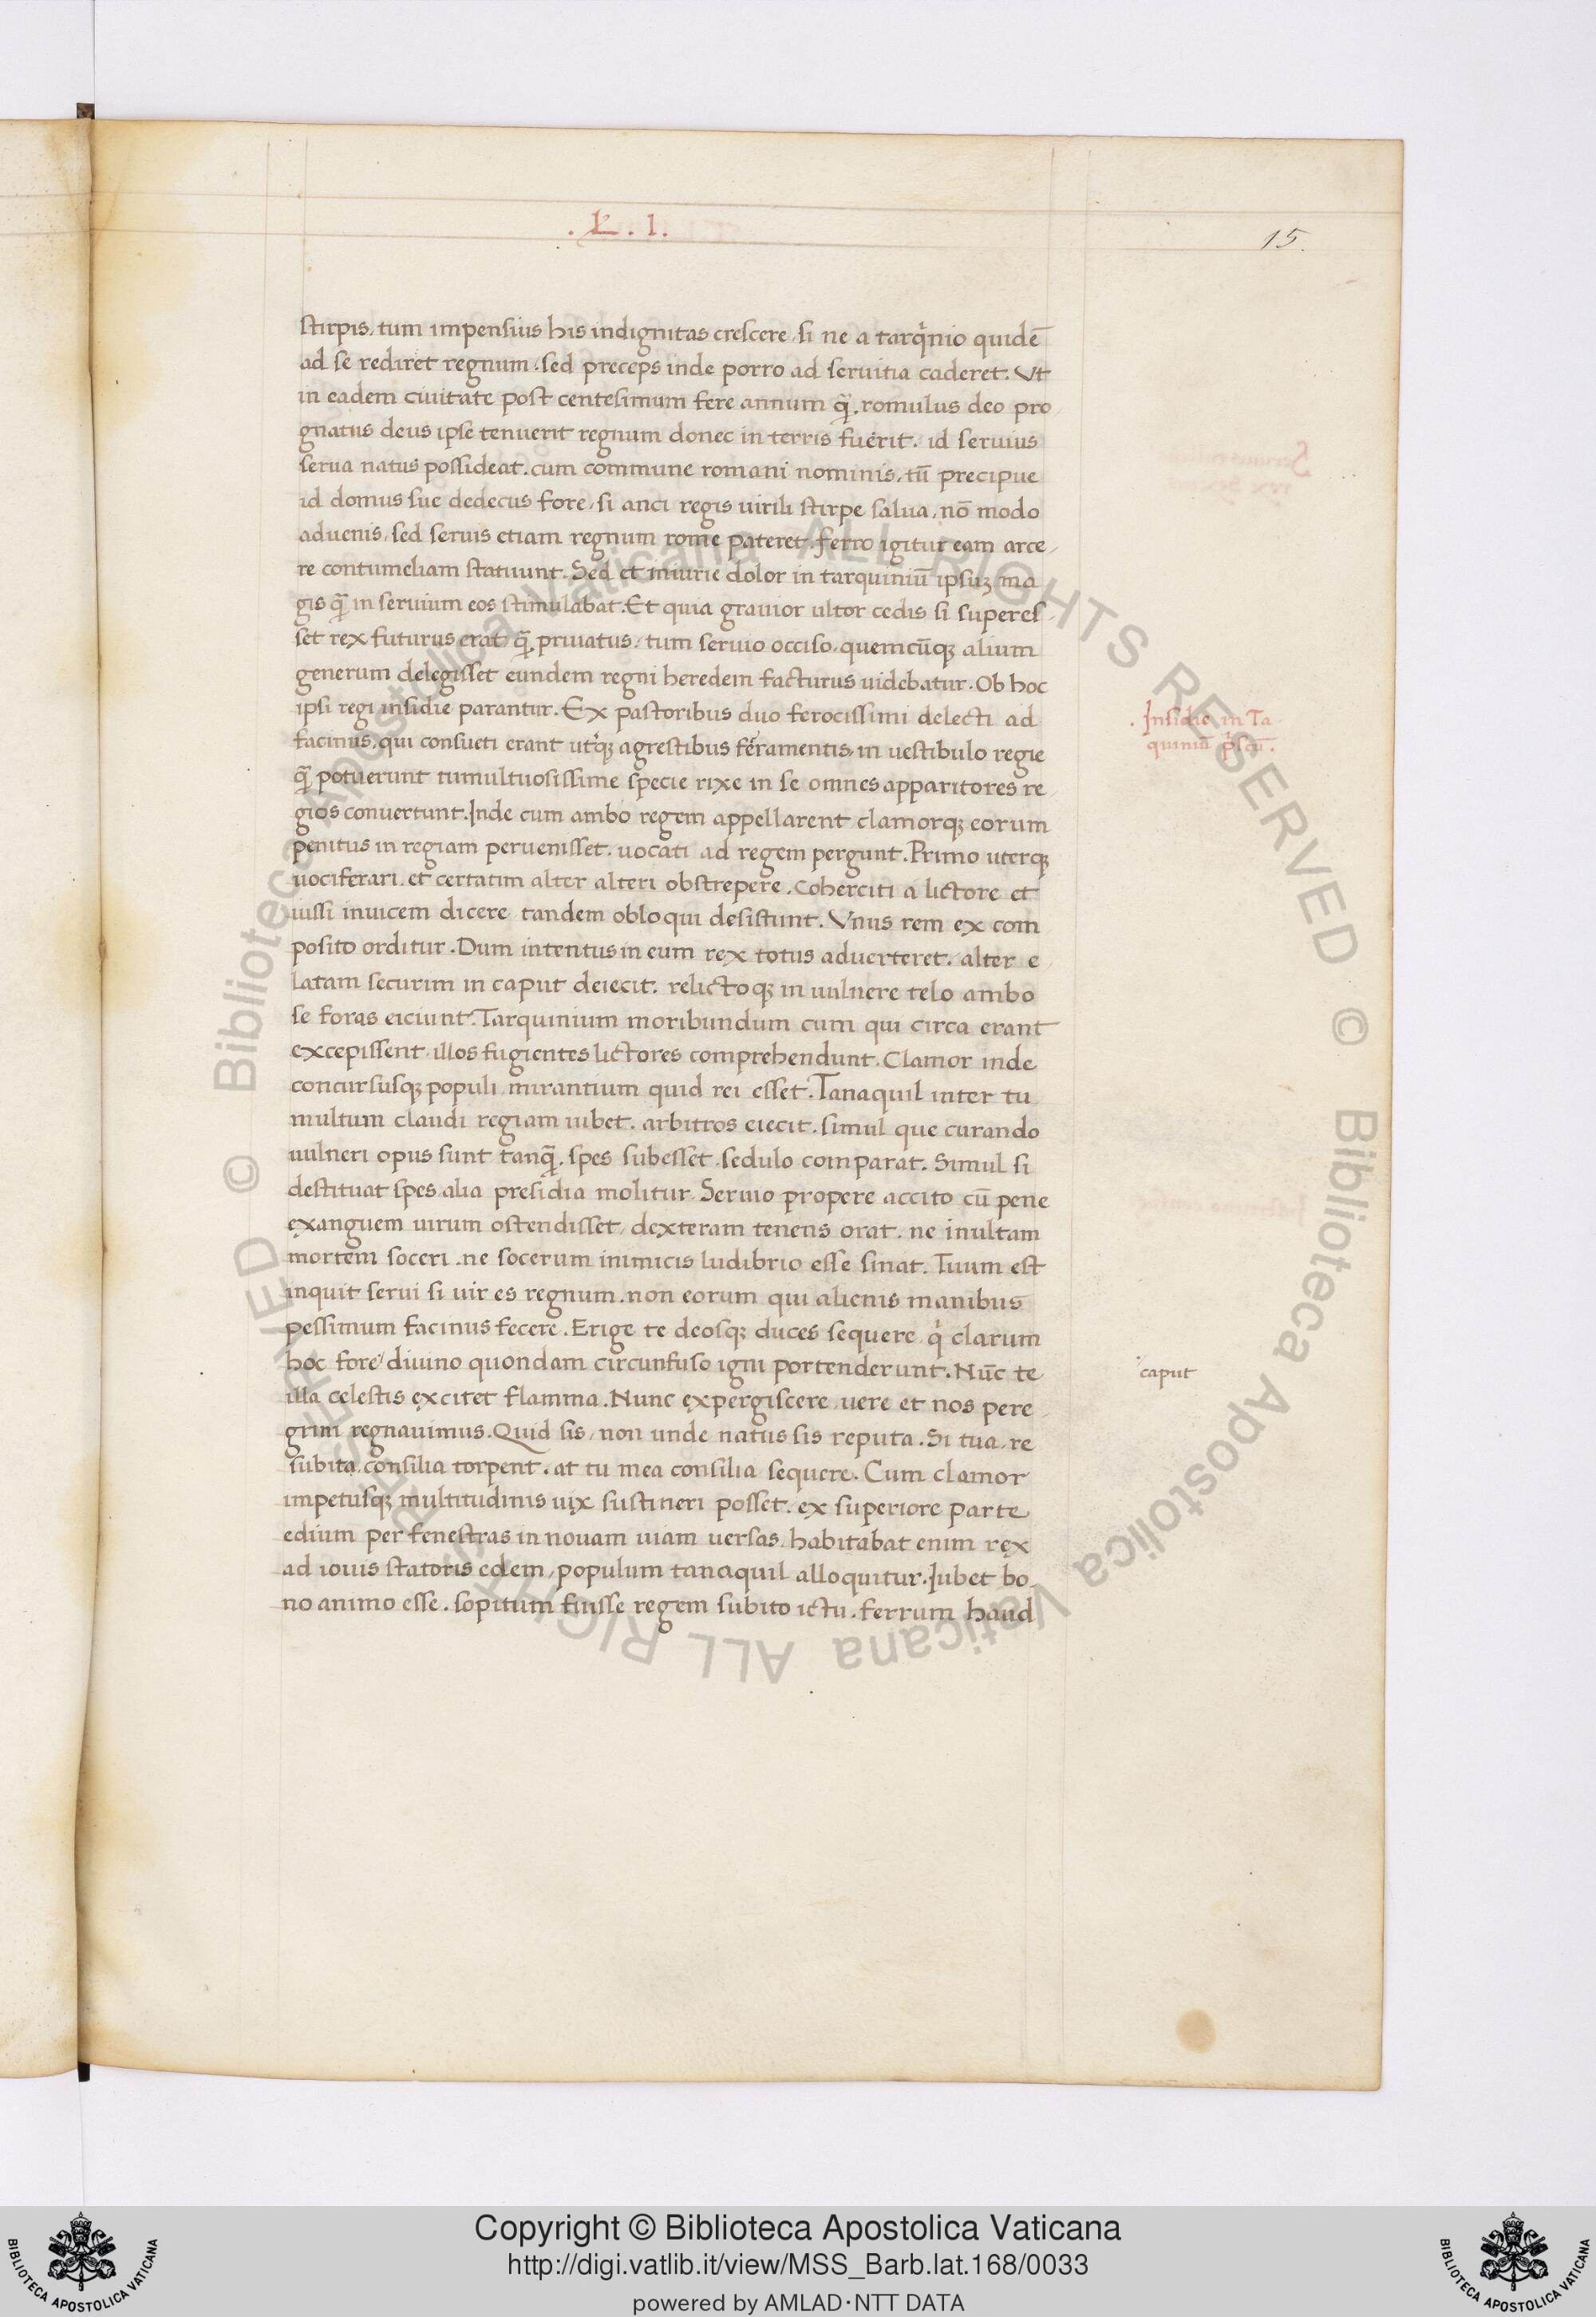 .L. I.
15.
stirpis, tum impensius his indignitas crescere, si ne a tarq̇nio quidē
ad se rediret regnum. sed preceps inde porro ad seruitia caderet. Vt
in eadem ciuitate post centesimum fere annum q̄. romulus deo pro
gnatus deus ipse tenuerit regnum donec in terris fuerit. id seruius
serua natus possideat. cum commune romani nominis, tū precipue
id domus sue dedecus fore, si anci regis uirili stirpe salua, nō modo
aduenis, sed seruis etiam regnum rome pateret. ferro igitur eam arce
re contumeliam statuunt. Sed et iniurie dolor in tarquiniū ipsuꝫ ma
gis q̄ in seruium eos stimulabat. Et quia grauior ultor cedis si superes
set rex futurus erat q̄. priuatus, tum seruio occiso, quemcūqꝫ alium
generum delegisset eundem regni heredem facturus uidebatur. Ob hoc
ipsi regi insidie parantur. Ex pastoribus duo ferocissimi delecti ad
facinus, qui consueti erant utꝫqꝫ agrestibus feramentis, in uestibulo regie
q̄ potuerunt tumultuosissime specie rixe in se omnes apparitores re
gios conuertunt. Inde cum ambo regem appellarent clamorqꝫ eorum
penitus in regiam peruenisset. uocati ad regem pergunt. Primo uterqꝫ
uociferari. et certatim alter alteri obstrepere. Coherciti a lictore et
iussi inuicem dicere tandem obloqui desistunt. Vnus rem ex com
posito orditur. Dum intentus in eum rex totus aduerteret, alter e
latam securim in caput deiecit. relictoqꝫ in uulnere telo ambo
se foras eiciunt. Tarquinium moribundum cum qui circa erant
excepissent, illos fugientes lictores comprehendunt. Clamor inde
concursusqꝫ populi mirantium quid rei esset. Tanaquil inter tu
multum claudi regiam iubet. arbitros eiecit. simul que curando
uulneri opus sunt tanq̄. spes subesset, sedulo comparat. Simul si
destituat spes alia presidia molitur. Seruio propere accito cū pene
exanguem uirum ostendisset, dexteram tenens orat. ne inultam
mortem soceri. ne socerum inimicis ludibrio esse sinat. Tuum est
inquit serui si uir es regnum. non eorum qui alienis manibus
pessimum facinus fecere. Erige te deosqꝫ duces sequere, q̇ clarum
hoc fore diuino quondam circunfuso igni portenderunt. Nūc te
illa celestis excitet flamma. Nunc expergiscere uere et nos pere
grini regnauimus. Quid sis, non unde natus sis reputa. Si tua, re
subita, consilia torpent. at tu mea consilia sequere. Cum clamor
impetusqꝫ multitudinis uix sustineri posset. ex superiore parte
edium per fenestras in nouam uiam uersas, habitabat enim rex
ad iouis statoris edem, populum tanaquil alloquitur. Iubet bo
no animo esse. sopitum fuisse regem subito ictu. ferrum haud
. Insidie in Ta
quiniū p̄scū.
caput
© Biblioteca Apostolica Vaticana ALL RIGHTS RESERVED © Biblioteca Apostolica Vaticana ALL RIGHTS RESERVED
Copyright © Biblioteca Apostolica Vaticana
http://digi.vatlib.it/view/MSS_Barb.lat.168/0033
powered by AMLAD·NTT DATA
BIBLIOTECA APOSTOLICA VATICANA
BIBLIOTECA APOSTOLICA VATICANA